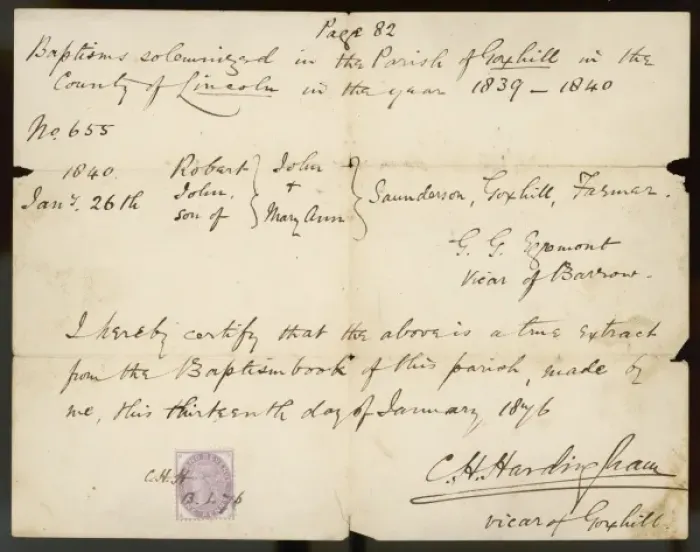 Page 82
Baptisms solemnized in the Parish of Goxhill in the
County of Lincoln in the year 1839 – 1840
No. 655
1840. Robert } John }
Jany. 26th John, { + } Saunderson, Goxhill, Farmer.
son of { Mary Ann }
G. G.
Vicar of Barrow.
I hereby certify that the above is a true extract
from the Baptism book of this parish, made by
me, this thirteenth day of January, 1876
C. H. Hardingham
C.H.H
13.1.76
vicar of Goxhill.